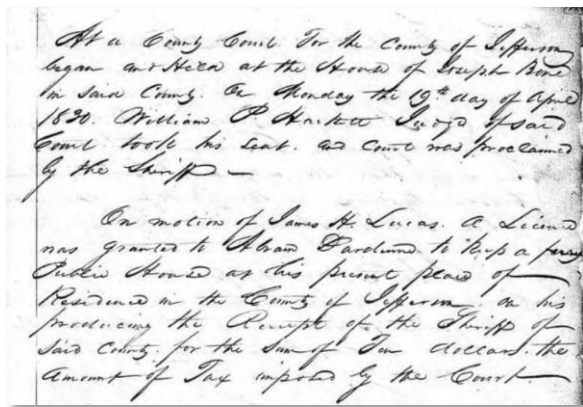 At a County Court for the County of Jefferson
began and Held at the House of Joseph Bone
in said County. On Monday the 19th day of April
1830. William P. Hackett Judge of said
Court took his seat. and Court was proclaimed
by the Sheriff
On motion of James H. Lucas. A Licence
was granted to Abram Dardenne to keep a
Public House at his present place of
Residence in the County of Jefferson. on his
producing the Receipt of the Sheriff of
said County. for the Sum of Ten dollars. the
Amount of Tax imposed by the Court.